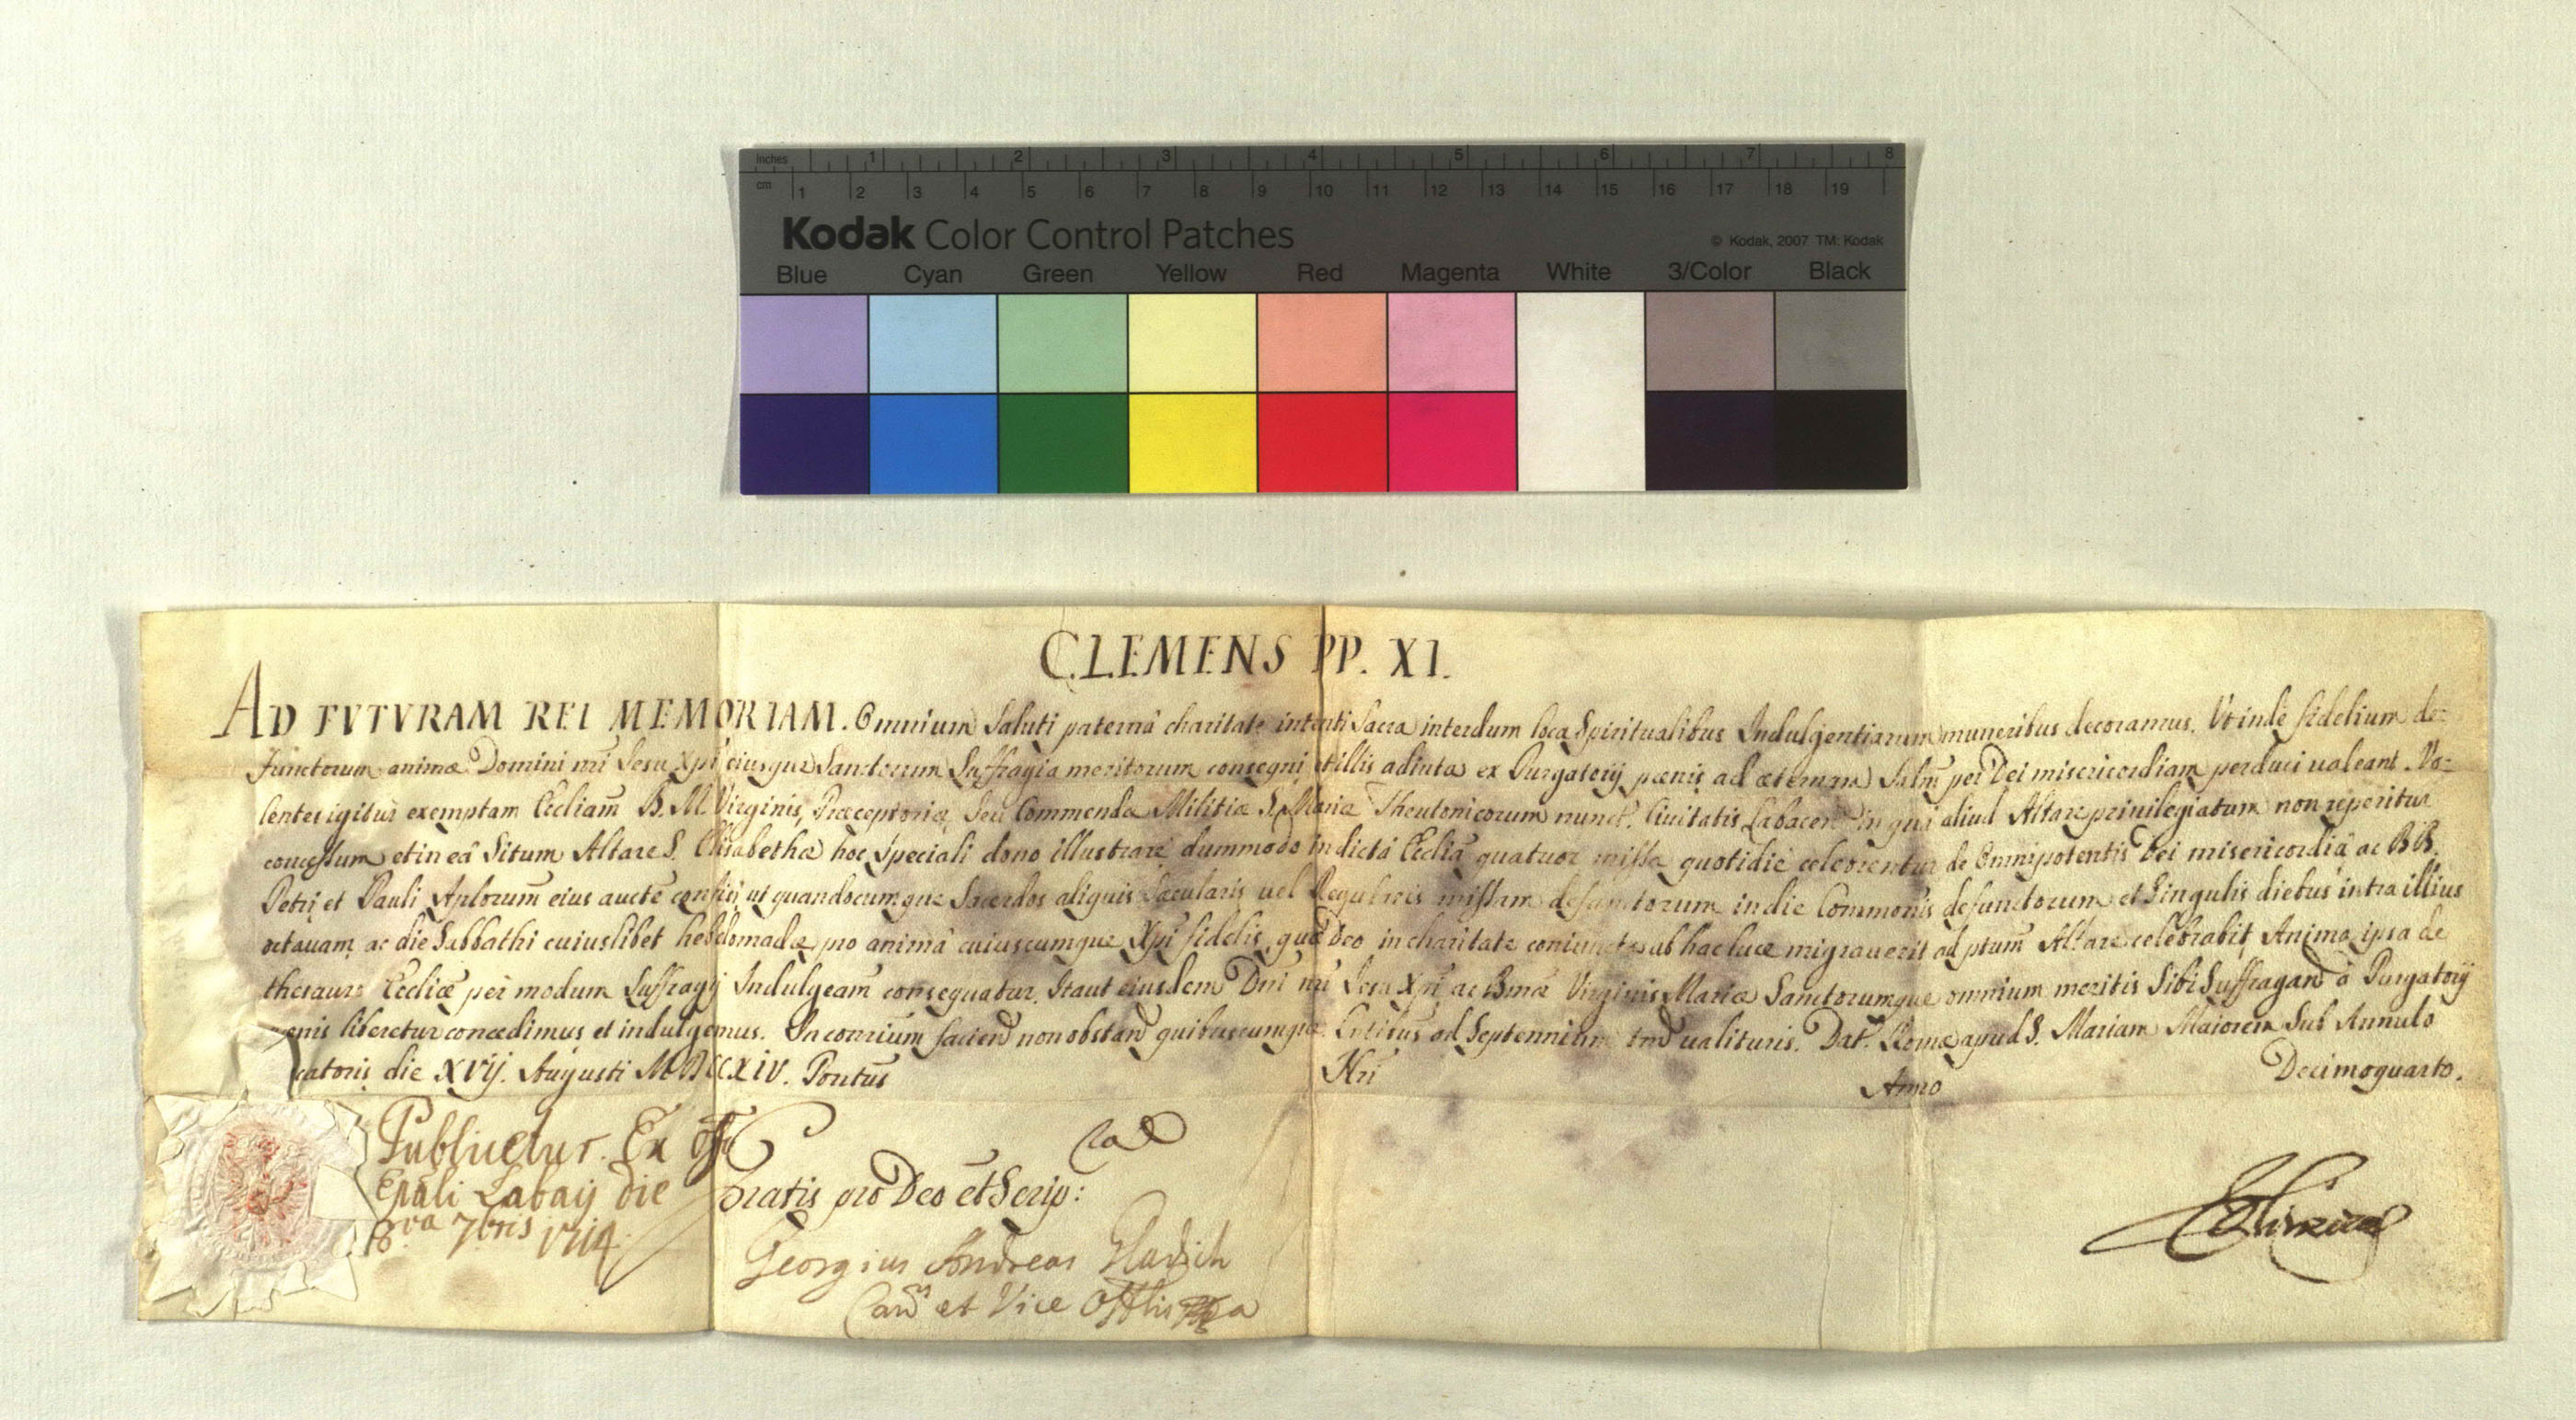 inches 1 2 3 4 5 6 7 8
cm 1 2 3 4 5 6 7 8 9 10 11 12 13 14 15 16 17 18 19
Kodak Color Control Patches
© Kodak, 2007 TM: Kodak
Blue Cyan Green Yellow Red Magenta White 3/Color Black
CLEMENS PP. XI.
AD FVTVRAM REI MEMORIAM. Omnium Saluti paternâ charitate intenti Sacra interdum loca Spiritualibus Indulgentiarum muneribus decoramus. Vt inde fidelium de=
functorum animæ Domini nrī Iesu Xpī eiusque Sanctorum Suffragia meritorum consequi et illis adiutæ ex Purgatorij pœnis ad æternam Salm̄ per Dei misericordiam perduci ualeant. Vo=
lentes igitur exemptam Eccliam̄ B. M. Virginis, Præceptoriæ, Seu Commendæ Militiæ S. Mariæ Theutonicorum nunct. Ciuitatis Labacen in qua aliud Altare priuilegiatum non reperitur
concessum et in eâ Situm Altare S. Elisabethæ hoc Speciali dono illustrare dummodo in dictâ Ecclia quatuor missæ quotidie celebrentur de Omnipotentis Dei misericordiâ ac BB.
Petri et Pauli Aplorum̄ eius aucte confisi ut quandocumque Sacerdos aliquis Sæcularis uel Regularis missam defunctorum in die Commonis defunctorum et Singulis diebus intra illius
octauam ac die Sabbathi cuiuslibet hebdomadæ pro animâ cuiuscumque Xpī fidelis quæ Deo in charitate coniuncta ab hac luce migrauerit ad ptum̄ Altare celebrabit Anima ipsa de
thesauro Eccliæ per modum Suffragij Indulgeam̄ consequatur. Ita ut eiusdem Dnī nrī Iesu Xpī ac Bmæ Virginis Mariæ Sanctorumque omnium meritis Sibi Suffragand à Purgatorij
pœnis liberetur concedimus et indulgemus. In conrium̄ faciend non obstand quibuscumque. Pntibus ad Septennium tnd ualituris. Dat. Romæ apud S. Mariam Maiorem Sub Annulo
catoris die XVij. Augusti MDCCXIV. Pontūs Nri Anno Decimoquarto.
Publicetur. Ex offo
Epāli Labaij die
8va 7bris 1714
Gratis pro Deo et Scrip:
Georgius Andreas
Can et Vice Offlis